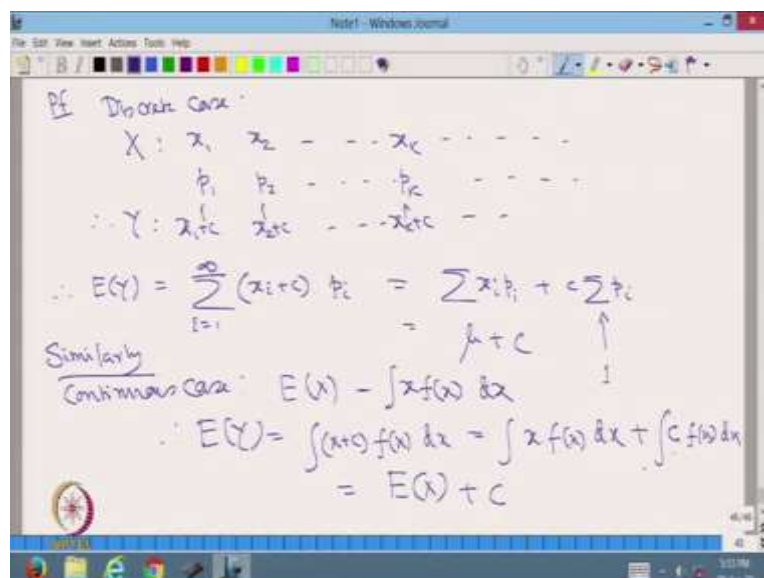 Note1 - Windows Journal
File Edit View Insert Actions Tools Help
Pf Discrete Case:
X : x₁ x₂ - - .. xₖ - - - - -
p₁ p₂ - - .. pₖ - - - -
∴ Y : x₁+c x₂+c - - - xₖ+c - -
∴ E(Y) = ∞∑i=1 (xᵢ+c) pᵢ = ∑xᵢpᵢ + c∑pᵢ
= μ + c ↑
1
Similarly
Continuous Case: E(X) - ∫x f(x) dx
∴ E(Y) = ∫(x+c) f(x) dx = ∫ x f(x) dx + ∫c f(x) dx
= E(X) + c
NPTEL